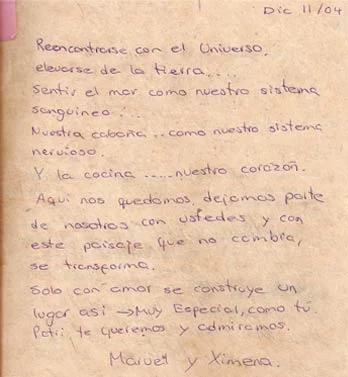 Dic 11/04
Reencontrarse con el Universo,
elevarse de la tierra....
Sentir el mar como nuestro sistema
sanguineo....
Nuestra cabaña .. como nuestro sistema
nervioso.
Y la cocina ..... nuestro corazón.
Aqui nos quedamos, dejamos parte
de nosotros con ustedes y con
este paisaje que no cambia,
se transforma.
Solo con amor se construye un
lugar asi → Muy Especial, como tú.
Patri te queremos y admiramos.
Manuel y Ximena.